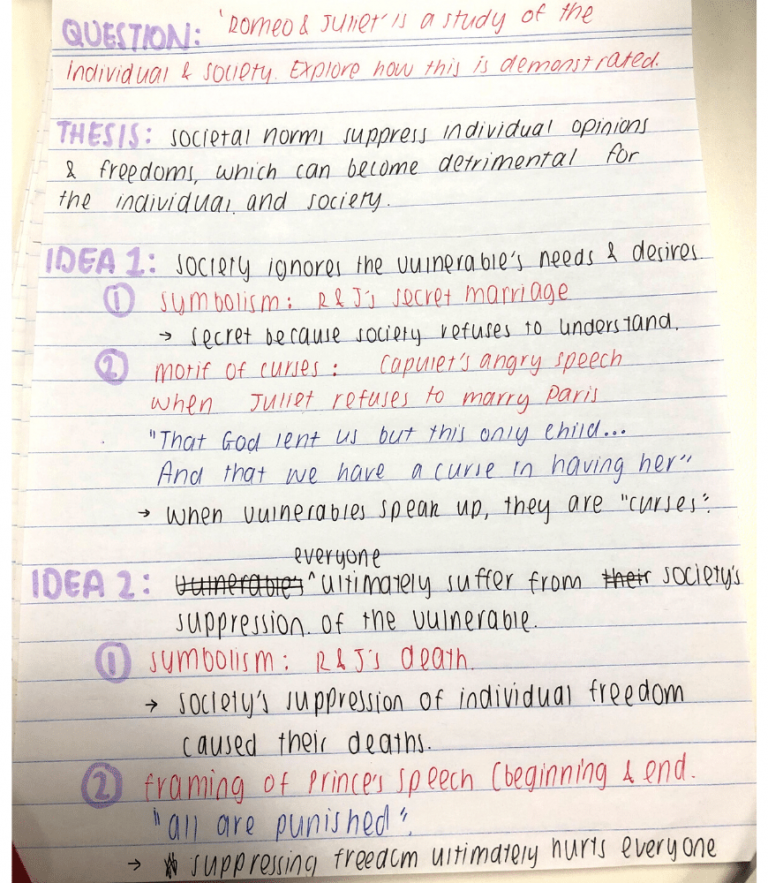 QUESTION: 'Romeo & Juliet' is a study of the
individual & society. Explore how this is demonstrated.
THESIS: societal norms suppress individual opinions
& freedoms, which can become detrimental for
the individual and society.
IDEA 1: society ignores the vulnerable's needs & desires
① symbolism: R&J's secret marriage
→ secret because society refuses to understand.
② motif of curses: Capulet's angry speech
when Juliet refuses to marry Paris
"That God lent us but this only child...
And that we have a curse in having her"
→ when vulnerables speak up, they are "curses".
everyone
IDEA 2: vulnerables ^ ultimately suffer from their society's
suppression. of the vulnerable.
① symbolism: R&J's death.
→ society's suppression of individual freedom
caused their deaths.
② framing of Prince's speech (beginning & end.
"all are punished".
→ suppressing freedom ultimately hurts everyone